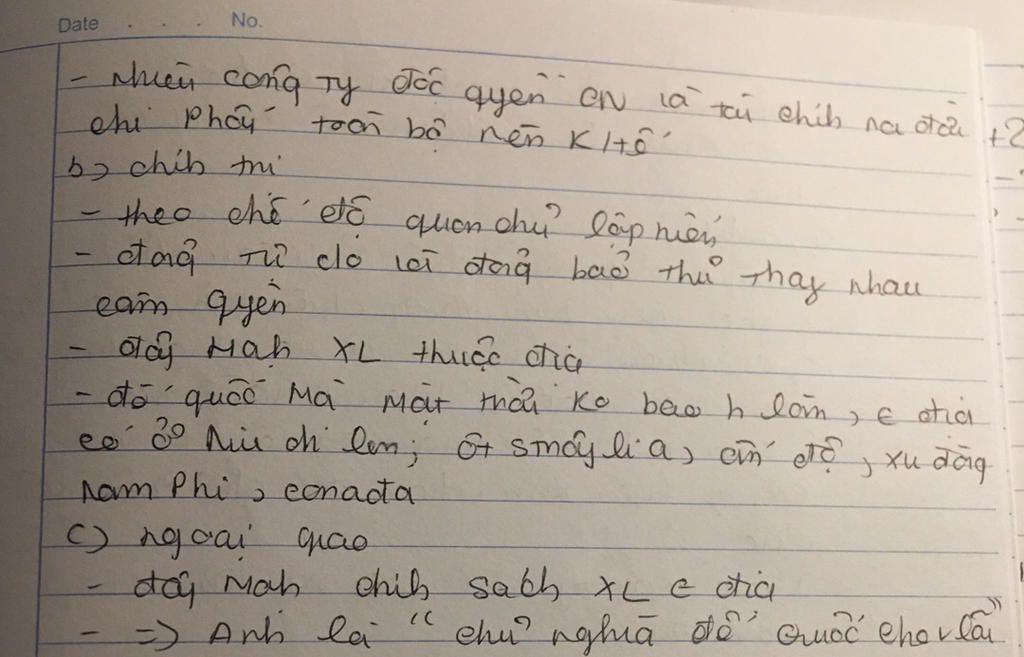 Date . . . No.
- nhiều công ty độc quyền CN và tài chính ra đời
chi phối toàn bộ nền K/tế
b, chính trị
- theo chế độ quân chủ lập hiến
- đảng tự do và đảng bảo thủ thay nhau
cầm quyền
- đẩy mạnh XL thuộc địa
- đế quốc Mà mặt trời ko bao h lặn, € địa
có ở Niu di len; ốt srnây li a, ấn độ, xu đăng
nam Phi, canađa
c) ngoại giao
- đẩy mạnh chính sách XL € địa
- => Anh là "chủ nghĩa đế quốc